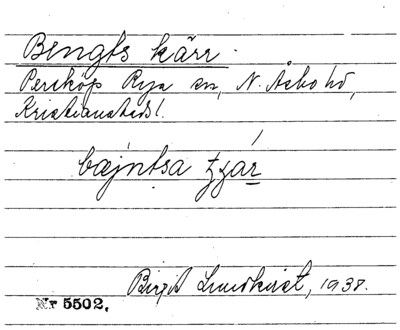 Bengts kärr.
Perstorp Rya sn, N. Åsbo hd,
Kristianstads l.
bæjntsa
Birgit Lundkvist, 1938.
Nr 5502.